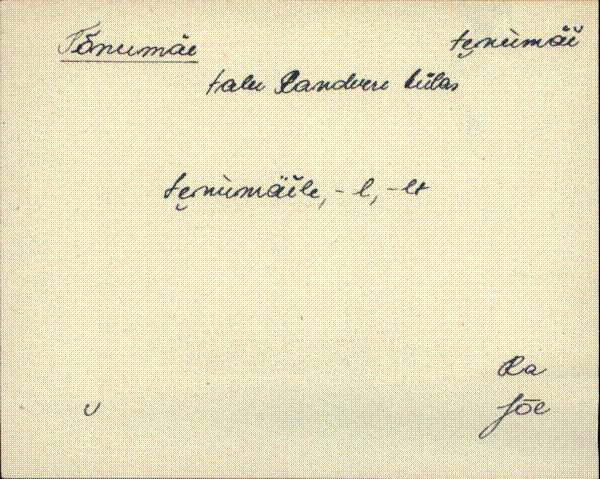 Tõnumäe te̮nùmäè
talu Randvere külas
te̮nùmäèle, -l, -lt
Ra
Jõe